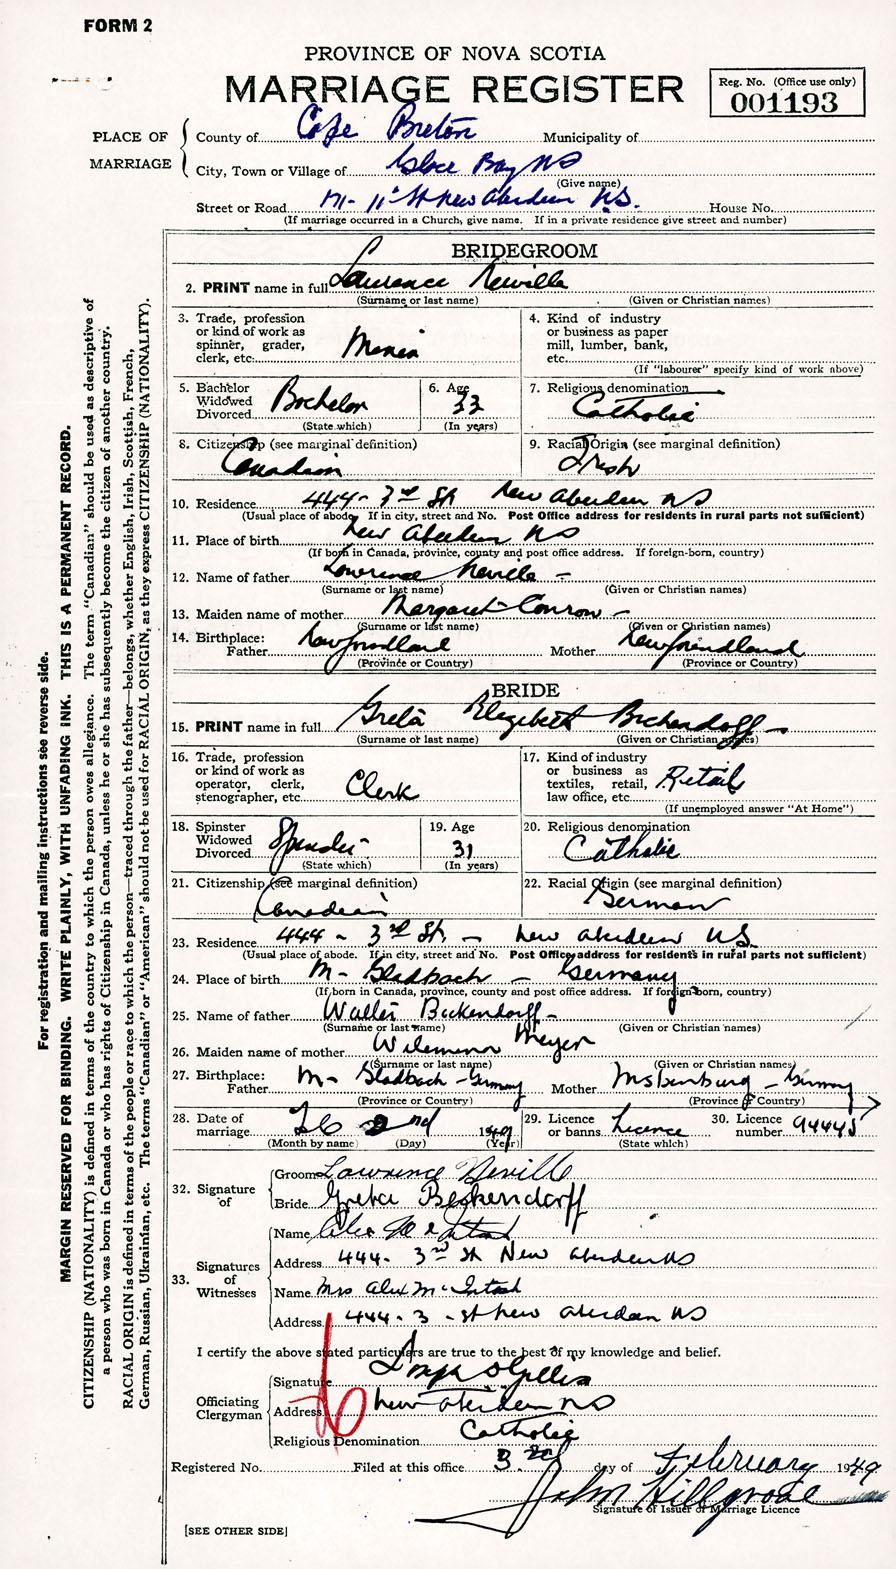 FORM 2
PROVINCE OF NOVA SCOTIA
MARRIAGE REGISTER
Reg. No. (Office use only)
001193
PLACE OF MARRIAGE
County of Cape Breton Municipality of
City, Town or Village of Glace Bay NS
(Give name)
Street or Road 171 - 11" St New Aberdeen N.S. House No.
(If marriage occurred in a Church, give name. If in a private residence give street and number)
BRIDEGROOM
2. PRINT name in full Lawrence Neville
(Surname or last name) (Given or Christian names)
3. Trade, profession or kind of work as spinner, grader, clerk, etc. Miner
4. Kind of industry or business as paper mill, lumber, bank, etc.
(If "labourer" specify kind of work above)
5. Bachelor Widowed Divorced Bachelor
(State which)
6. Age 33
(In years)
7. Religious denomination Catholic
8. Citizenship (see marginal definition) Canadian
9. Racial Origin (see marginal definition) Irish
10. Residence 444 - 3rd St New Aberdeen NS
(Usual place of abode. If in city, street and No. Post Office address for residents in rural parts not sufficient)
11. Place of birth New Aberdeen NS
(If born in Canada, province, county and post office address. If foreign-born, country)
12. Name of father Lawrence Neville -
(Surname or last name) (Given or Christian names)
13. Maiden name of mother Margaret Conrow -
(Surname or last name) (Given or Christian names)
14. Birthplace: Father Newfoundland Mother Newfoundland
(Province or Country) (Province or Country)
BRIDE
15. PRINT name in full Greta Elezibeth Beckendorff -
(Surname or last name) (Given or Christian names)
16. Trade, profession or kind of work as operator, clerk, stenographer, etc. Clerk
17. Kind of industry or business as textiles, retail, law office, etc. Retail
(If unemployed answer "At Home")
18. Spinster Widowed Divorced
(State which)
19. Age 31
(In years)
20. Religious denomination Catholic
21. Citizenship (see marginal definition) Canadian
22. Racial Origin (see marginal definition) German
23. Residence 444 - 3rd St. - New Aberdeen N.S.
(Usual place of abode. If in city, street and No. Post Office address for residents in rural parts not sufficient)
24. Place of birth M - Gladbach - Germany
(If born in Canada, province, county and post office address. If foreign-born, country)
25. Name of father Walter Beckendorff -
(Surname or last name) (Given or Christian names)
26. Maiden name of mother Wilemenor Meyer
(Surname or last name) (Given or Christian names)
27. Birthplace: Father M - Gladbach - Germany Mother - Germany
(Province or Country) (Province or Country)
28. Date of marriage Feb 2nd 1949
(Month by name) (Day) (Year)
29. Licence or banns Licence
(State which)
30. Licence number 94445
32. Signature of
Groom Lawrence Neville
Bride Greta Beckendorff
33. Signatures of Witnesses
Name Alex McIntosh
Address 444 - 3rd St New Aberdeen NS
Name Mrs Alex McIntosh
Address 444 - 3 - St New Aberdeen NS
I certify the above stated particulars are true to the best of my knowledge and belief.
Officiating Clergyman
Signature
Address New Aberdeen NS
Religious Denomination Catholic
Registered No. Filed at this office 3rd day of February 1949
John Hillgrove
Signature of Issuer of Marriage Licence
[SEE OTHER SIDE]
For registration and mailing instructions see reverse side.
MARGIN RESERVED FOR BINDING. WRITE PLAINLY, WITH UNFADING INK. THIS IS A PERMANENT RECORD.
CITIZENSHIP (NATIONALITY) is defined in terms of the country to which the person owes allegiance. The term "Canadian" should be used as descriptive of
a person who was born in Canada or who has rights of Citizenship in Canada, unless he or she has subsequently become the citizen of another country.
RACIAL ORIGIN is defined in terms of the people or race to which the person—traced through the father—belongs, whether English, Irish, Scottish, French,
German, Russian, Ukrainian, etc. The terms "Canadian" or "American" should not be used for RACIAL ORIGIN, as they express CITIZENSHIP (NATIONALITY).